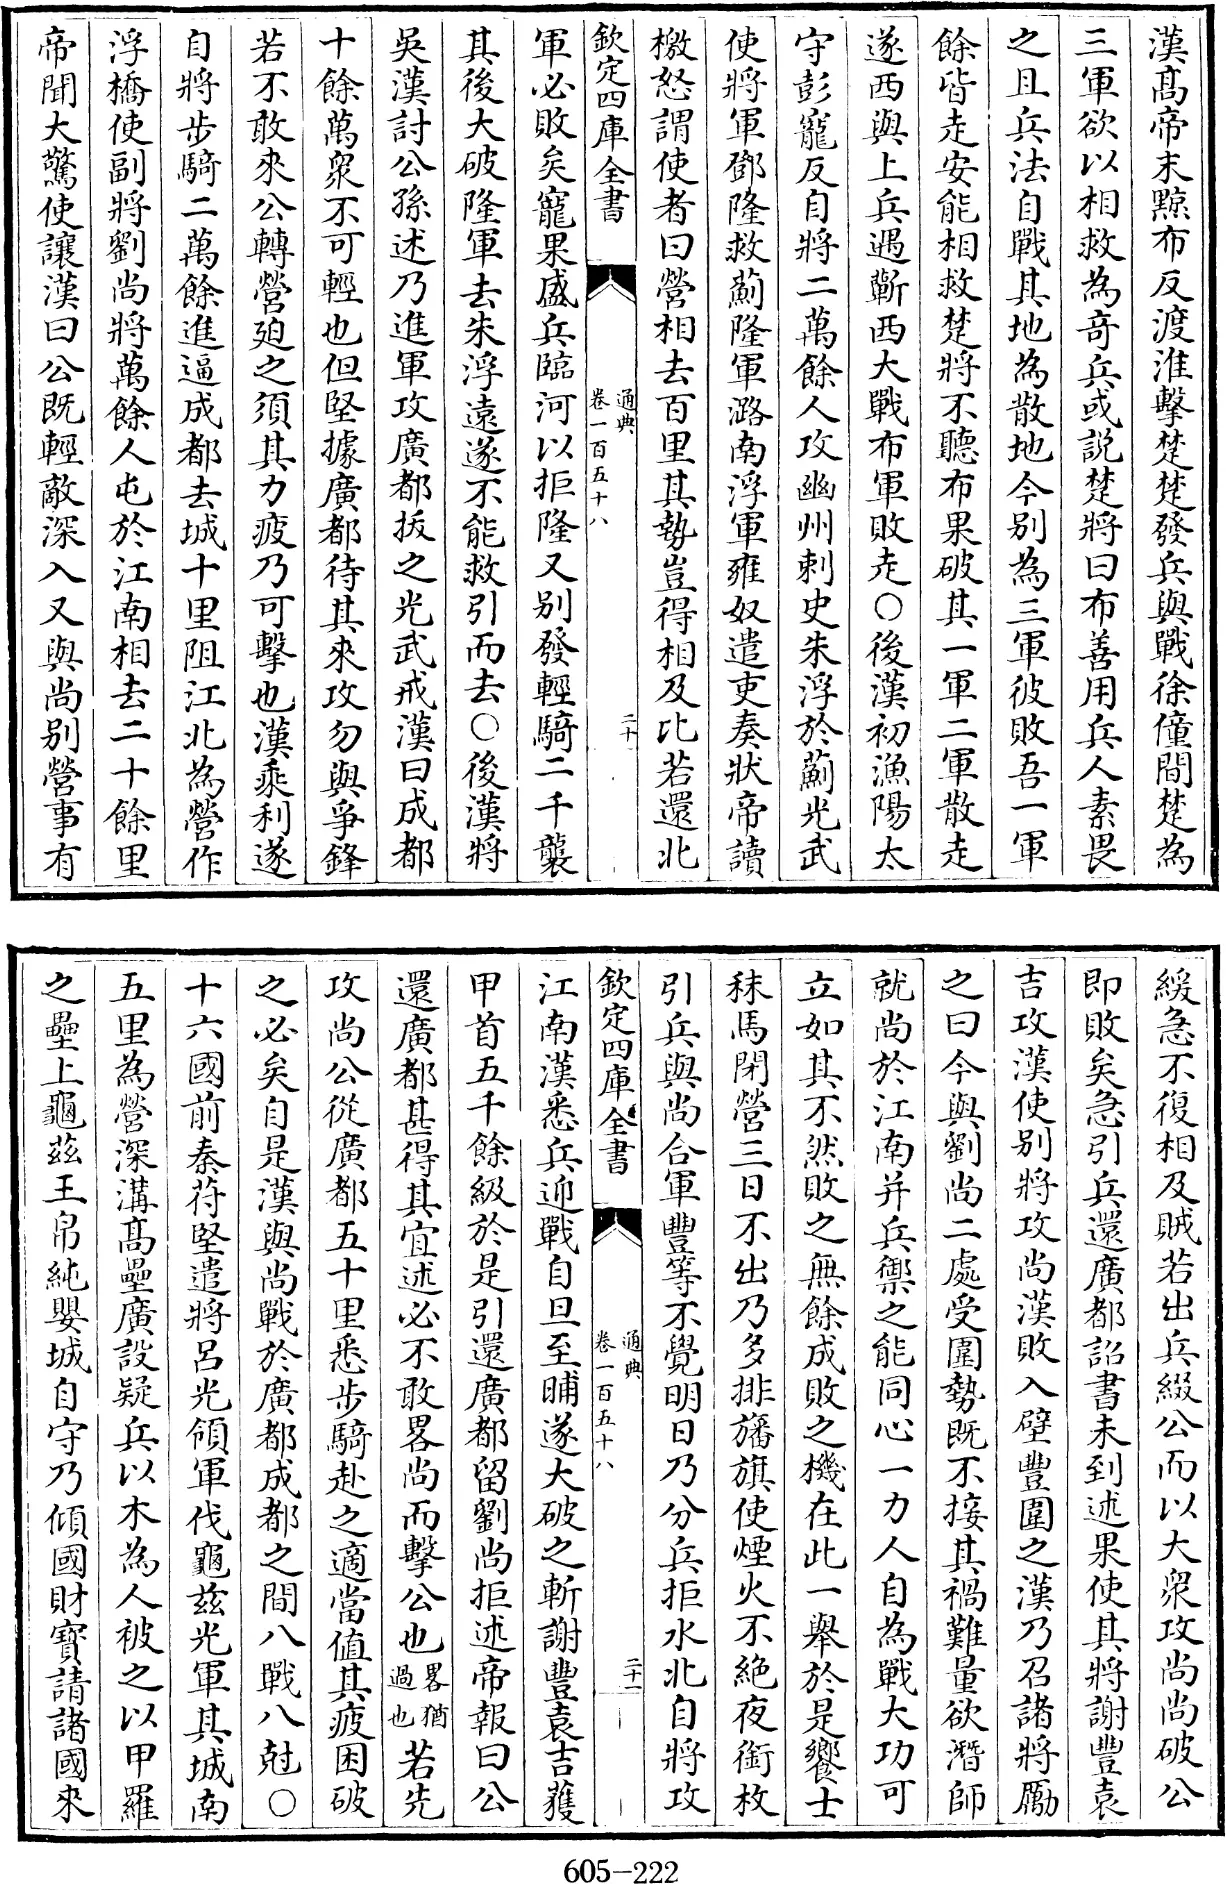 漢髙帝末黥布反渡淮擊楚楚發兵與戰徐僮間楚為
三軍欲以相救為竒兵或説楚將曰布善用兵人素畏
之且兵法自戰其地為散地今别為三軍彼敗吾一軍
餘皆走安能相救楚將不聽布果破其一軍二軍散走
遂西與上兵遇蘄西大戰布軍敗走○後漢初漁陽太
守彭寵反自將二萬餘人攻幽州刺史朱浮於薊光武
使將軍鄧隆救薊隆軍潞南浮軍雍奴遣吏奏狀帝讀
檄怒謂使者曰營相去百里其勢豈得相及比若還北
欽定四庫全書
通典
卷一百五十八
二十
軍必敗矣寵果盛兵臨河以拒隆又别發輕騎二千襲
其後大破隆軍去朱浮遠遂不能救引而去○後漢將
吳漢討公孫述乃進軍攻廣都拔之光武戒漢曰成都
十餘萬衆不可輕也但堅據廣都待其來攻勿與爭鋒
若不敢來公轉營廹之須其力疲乃可擊也漢乘利遂
自將步騎二萬餘進逼成都去城十里阻江北為營作
浮橋使副將劉尚將萬餘人屯於江南相去二十餘里
帝聞大驚使讓漢曰公既輕敵深入又與尚别營事有
緩急不復相及賊若出兵綴公而以大衆攻尚尚破公
即敗矣急引兵還廣都詔書未到述果使其將謝豐袁
吉攻漢使别將攻尚漢敗入壁豐圍之漢乃召諸將勵
之曰今與劉尚二處受圍勢既不接其禍難量欲潛師
就尚於江南并兵禦之能同心一力人自為戰大功可
立如其不然敗之無餘成敗之機在此一舉於是饗士
秣馬閉營三日不出乃多排旛旗使煙火不絶夜銜枚
引兵與尚合軍豐等不覺明日乃分兵拒水北自將攻
欽定四庫全書
通典
卷一百五十八
二十一
江南漢悉兵迎戰自旦至晡遂大破之斬謝豐袁吉獲
甲首五千餘級於是引還廣都留劉尚拒述帝報曰公
還廣都甚得其宜述必不敢畧尚而擊公也畧猶過也若先
攻尚公從廣都五十里悉步騎赴之適當值其疲困破
之必矣自是漢與尚戰於廣都成都之間八戰八尅○
十六國前秦苻堅遣將呂光領軍伐龜茲光軍其城南
五里為營深溝髙壘廣設疑兵以木為人被之以甲羅
之壘上龜茲王帛純嬰城自守乃傾國財寳請諸國來
605-222